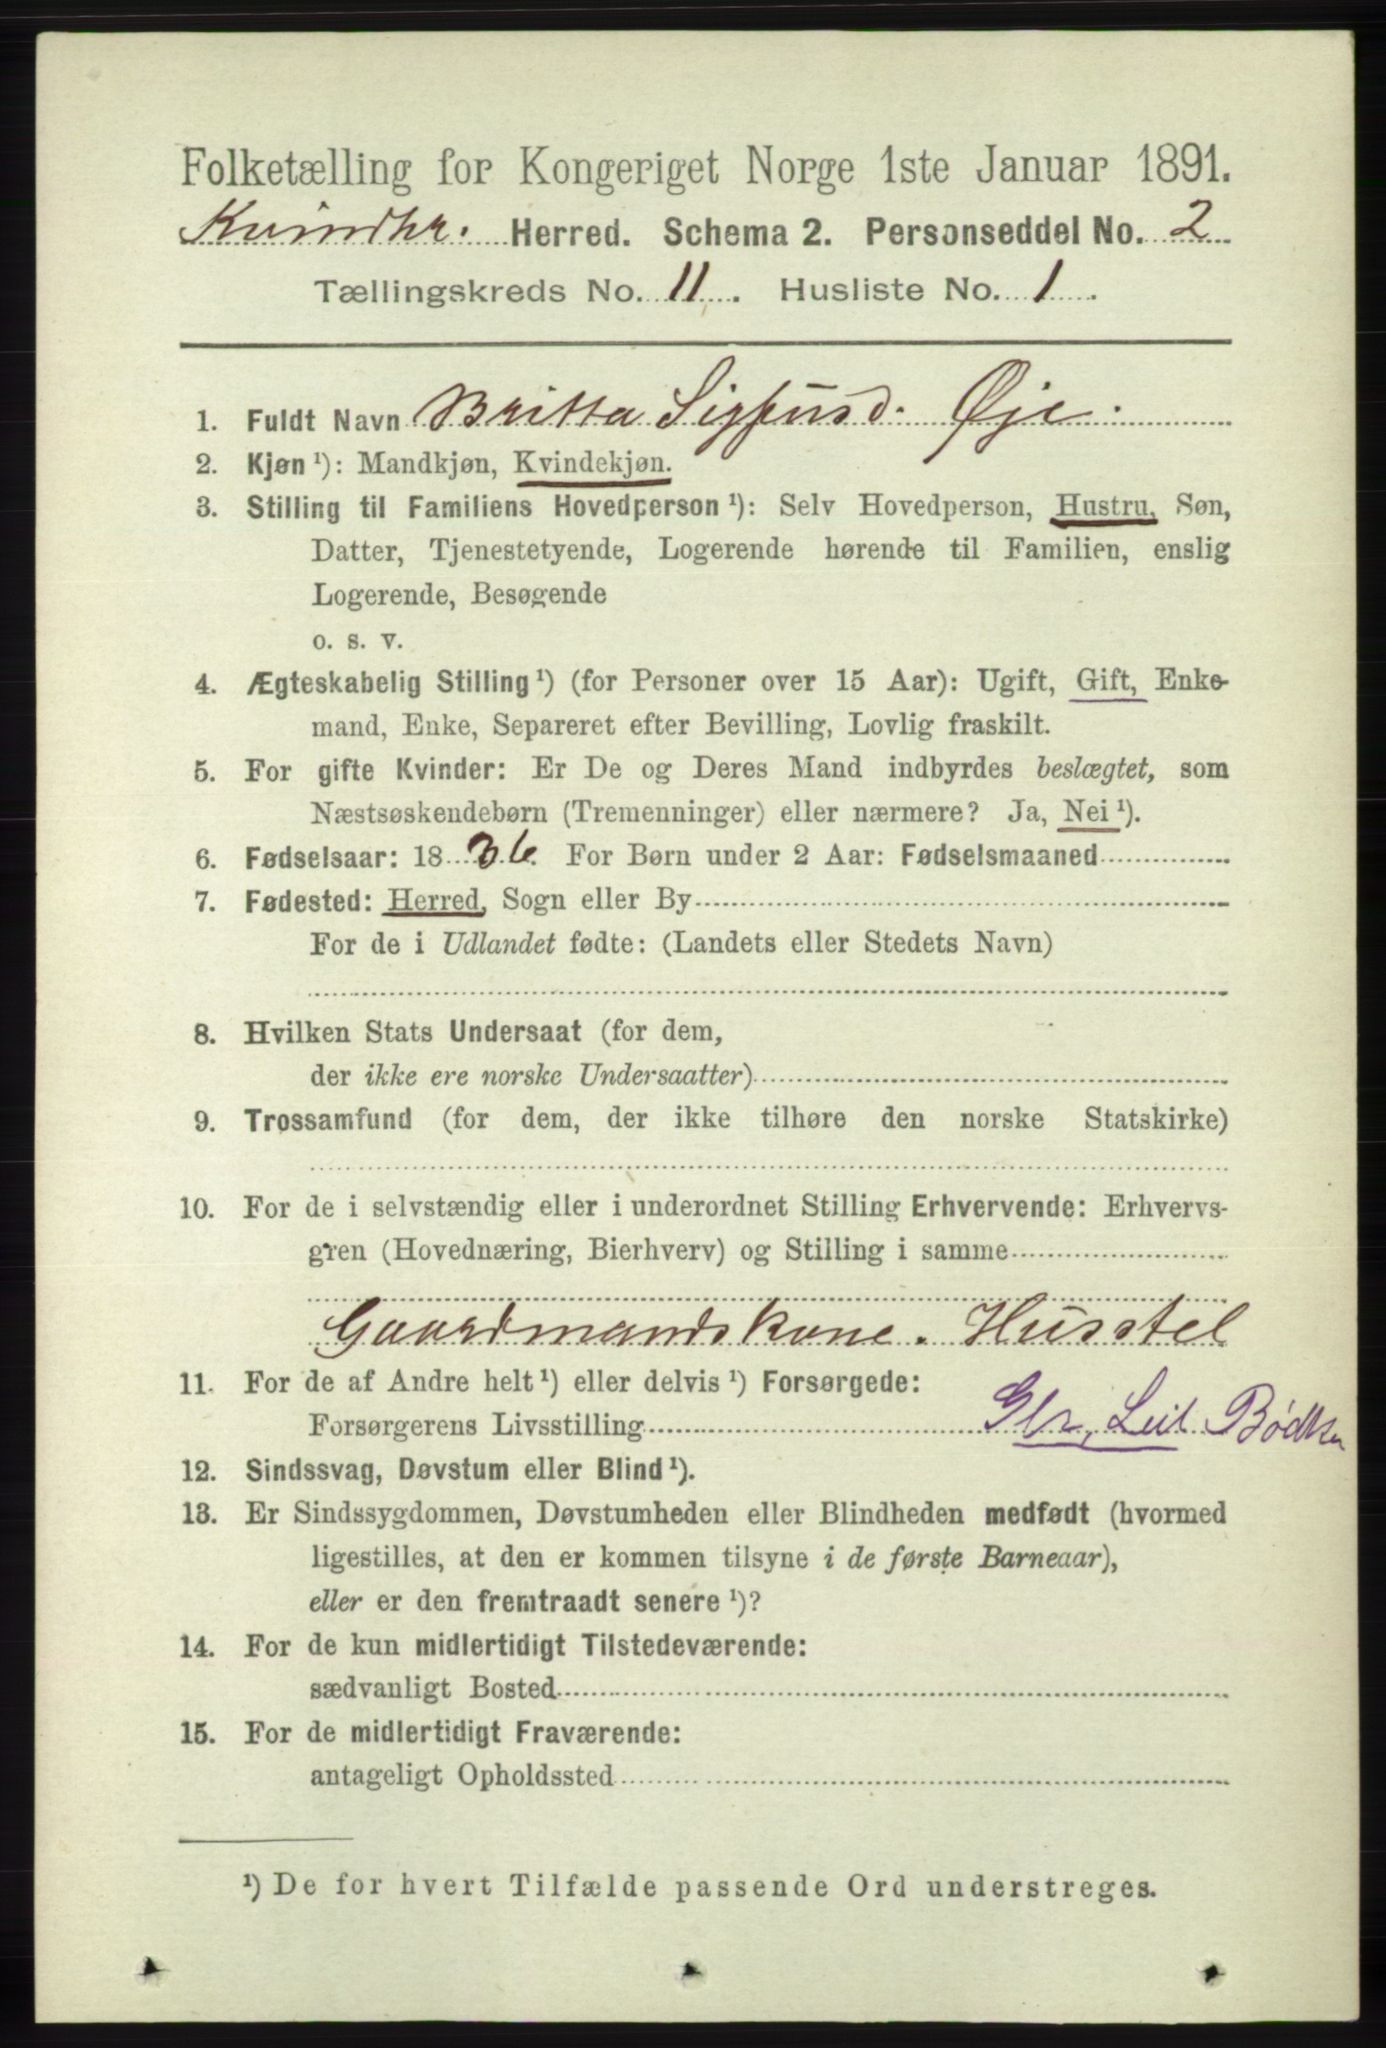 Folketælling for Kongeriget Norge 1ste Januar 1891.
Kvindhr. Herred. Schema 2. Personseddel No. 2
Tællingskreds No. 11. Husliste No. 1.
1. Fuldt Navn Britta Sigfusd. Øje.
2. Kjøn ¹): Mandkjøn, Kvindekjøn.
3. Stilling til Familiens Hovedperson ¹): Selv Hovedperson, Hustru, Søn,
Datter, Tjenestetyende, Logerende hørende til Familien, enslig
Logerende, Besøgende
o. s. v.
4. Ægteskabelig Stilling ¹) (for Personer over 15 Aar): Ugift, Gift, Enke-
mand, Enke, Separeret efter Bevilling, Lovlig fraskilt.
5. For gifte Kvinder: Er De og Deres Mand indbyrdes beslægtet, som
Næstsøskendebørn (Tremenninger) eller nærmere? Ja, Nei ¹).
6. Fødselsaar: 1836. For Børn under 2 Aar: Fødselsmaaned
7. Fødested: Herred, Sogn eller By
For de i Udlandet fødte: (Landets eller Stedets Navn)
8. Hvilken Stats Undersaat (for dem,
der ikke ere norske Undersaatter)
9. Trossamfund (for dem, der ikke tilhøre den norske Statskirke)
10. For de i selvstændig eller i underordnet Stilling Erhvervende: Erhvervs-
gren (Hovednæring, Bierhverv) og Stilling i samme
Gaardmandskone. Husstel
11. For de af Andre helt ¹) eller delvis ¹) Forsørgede:
Forsørgerens Livsstilling Bødker
12. Sindssvag, Døvstum eller Blind ¹).
13. Er Sindssygdommen, Døvstumheden eller Blindheden medfødt (hvormed
ligestilles, at den er kommen tilsyne i de første Barneaar),
eller er den fremtraadt senere ¹)?
14. For de kun midlertidigt Tilstedeværende:
sædvanligt Bosted
15. For de midlertidigt Fraværende:
antageligt Opholdssted
¹) De for hvert Tilfælde passende Ord understreges.